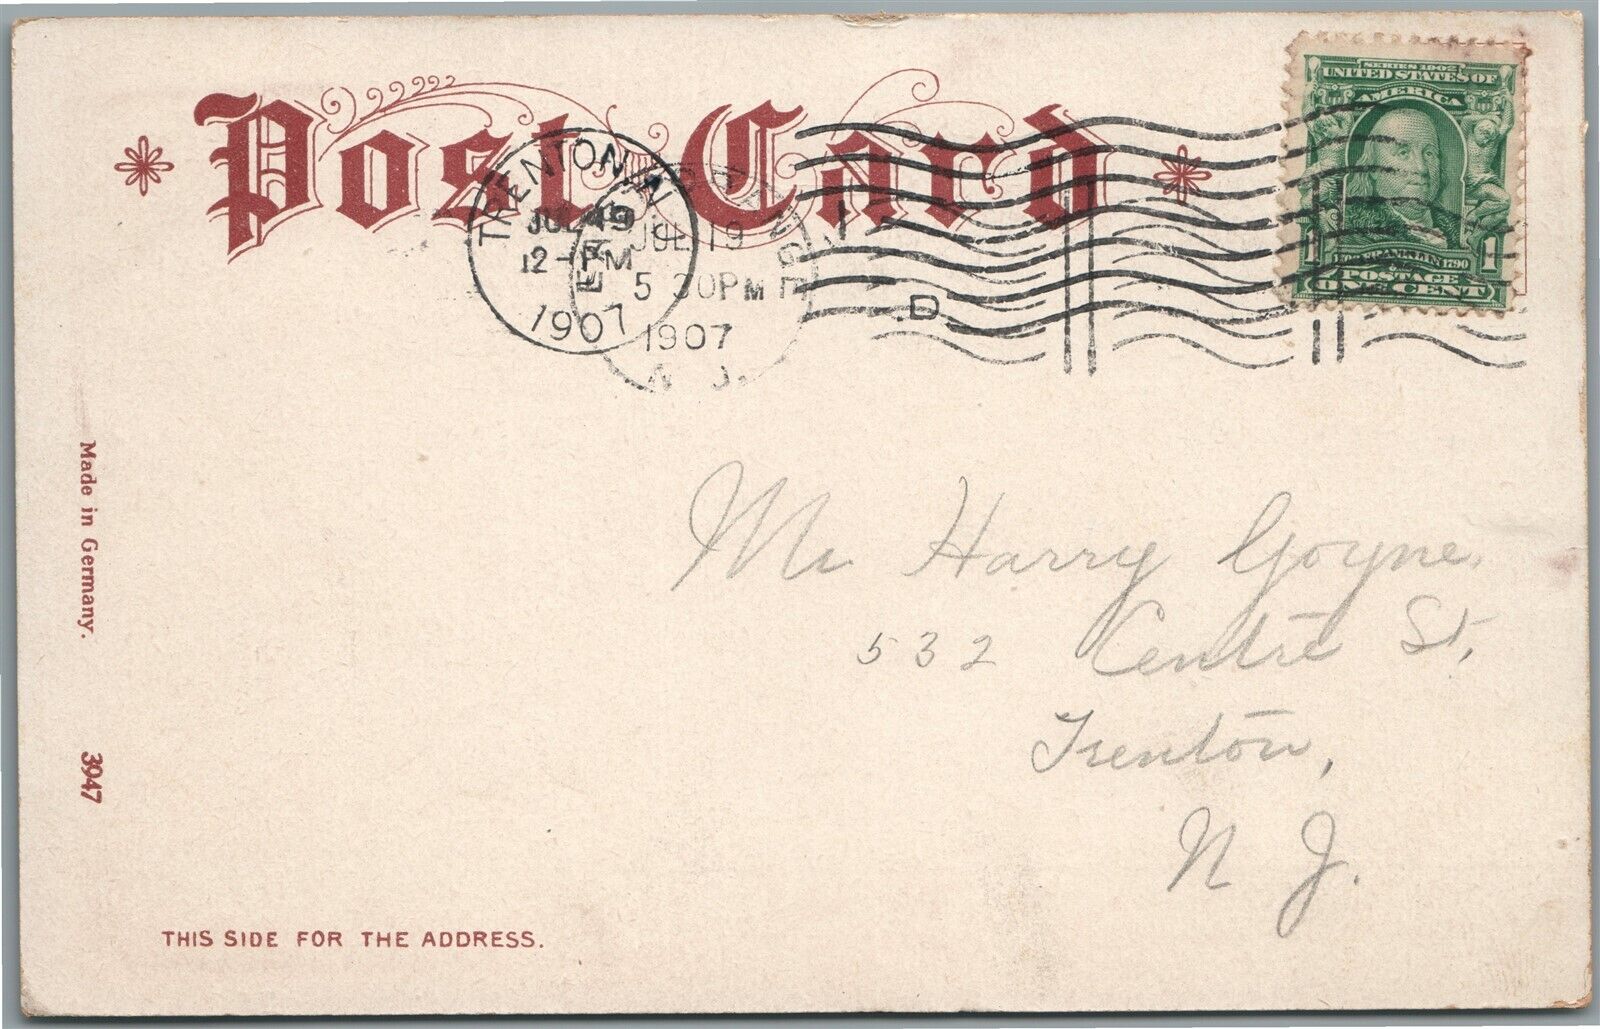 Post Card
SERIES 1902
UNITED STATES OF
AMERICA
POSTAGE
1 1
ONE CENT
TRENTON, N.J.
JUL 19
12-PM
1907
JUL 19
5 30 PM
1907
N. J.
D
Mr Harry Goyne,
532 Centre St,
Trenton,
N J.
Made in Germany.
3947
THIS SIDE FOR THE ADDRESS.